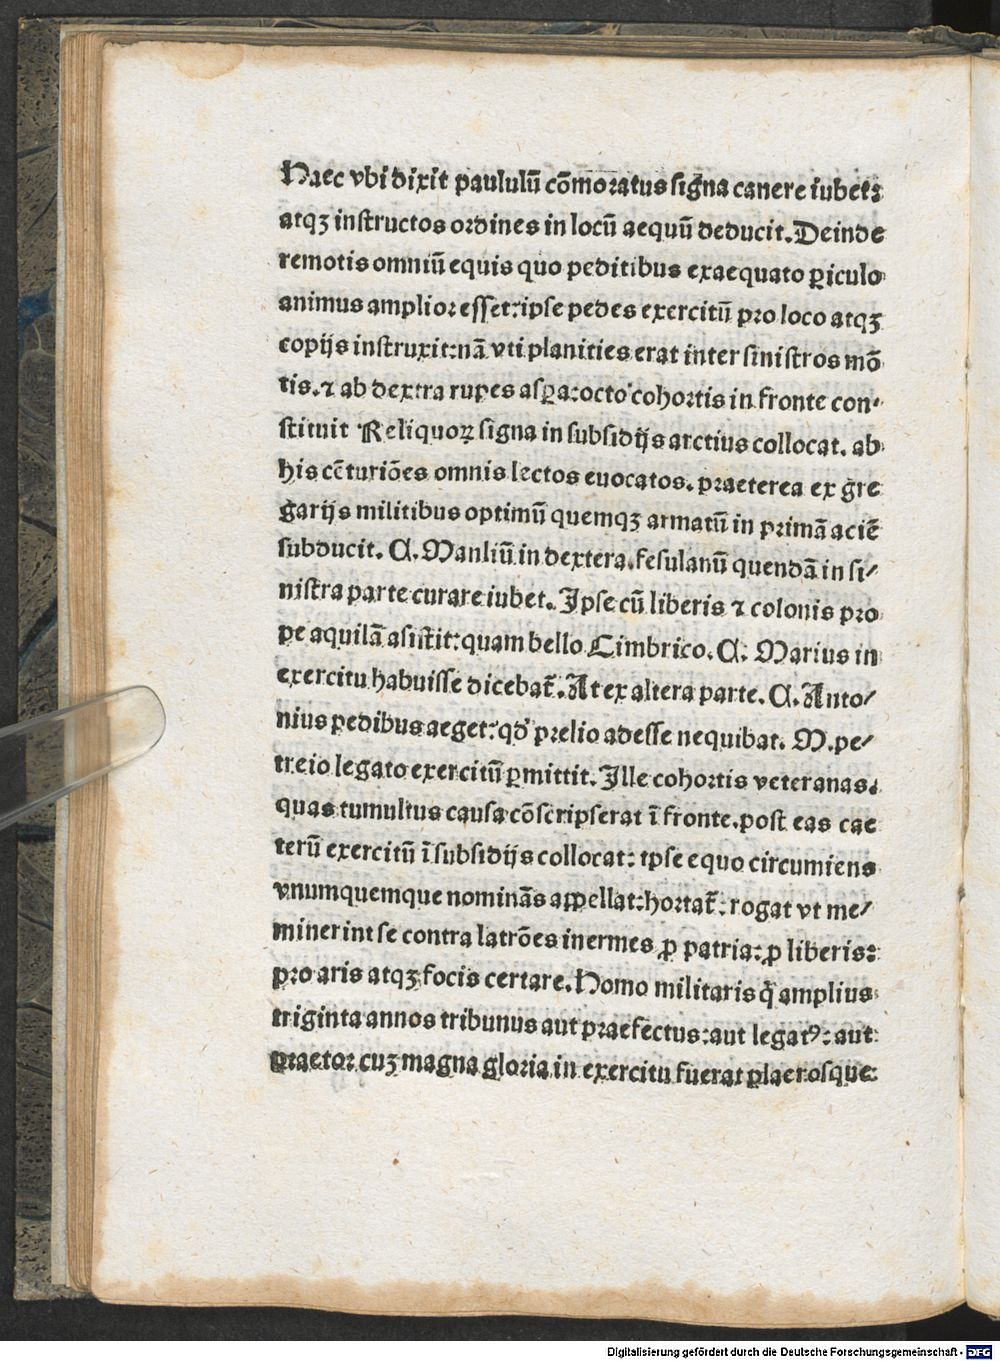 Haec vbi dixit paululū cōmoratus signa canere iubet:
atqꝫ instructos ordines in locū aequū deducit. Deinde
remotis omniū equis quo peditibus exaequato ꝑiculo
animus amplior esset: ipse pedes exercitū pro loco atqꝫ
copijs instruxit: nā vti planities erat inter sinistros mō
tis. ⁊ ab dextra rupes asꝑa: octo cohortis in fronte con-
stituit Reliquoꝝ signa in subsidijs arctius collocat. ab
his cēturiōes omnis lectos euocatos. praeterea ex gre
garijs militibus optimū quemqꝫ armatū in primā aciē
subducit. C. Manliū in dextera. fesulanū quendā in si/
nistra parte curare iubet. Ipse cū liberis ⁊ colonis pro
pe aquilā asistit: quam bello Cimbrico. C. Marius in
exercitu habuisse dicebat̄. At ex altera parte. C. Anto/
nius pedibus aeger: qđ prelio adesse nequibat. M. pe/
treio legato exercitū ꝑmittit. Ille cohortis veteranas.
quas tumultus causa cōscripserat ī fronte. post eas cae
terū exercitū ī subsidijs collocat: ipse equo circumiens
vnumquemque nominās appellat: hortat̄: rogat vt me/
minerint se contra latrōes inermes ꝓ patria: ꝓ liberis:
pro aris atqꝫ focis certare. Homo militaris q̄ amplius
triginta annos tribunus aut praefectus: aut legatꝰ: aut
praetor cuꝫ magna gloria in exercitu fuerat plaerosque
Digitalisierung gefördert durch die Deutsche Forschungsgemeinschaft - DFG